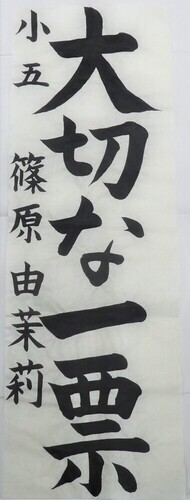 大切な一票
小五 篠原由茉莉